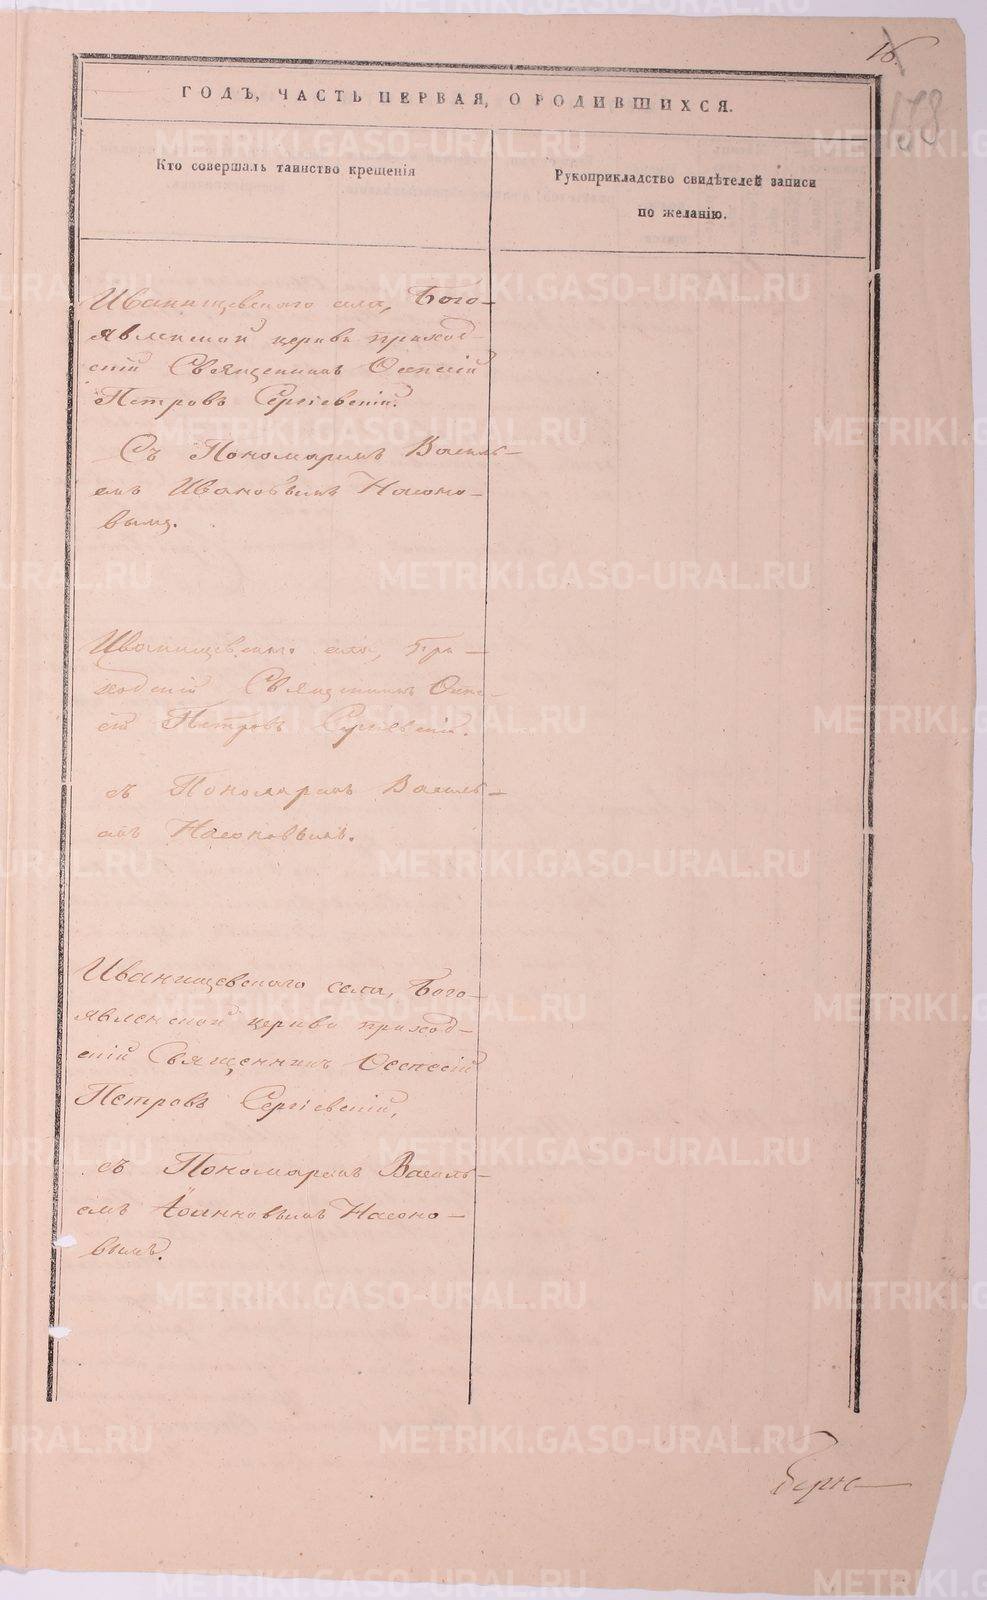 16.
178
ГОДЪ, ЧАСТЬ ПЕРВАЯ, О РОДИВШИХСЯ.
Кто совершалъ таинство крещенія
Рукоприкладство свидѣтелей записи
по желанію.
Иванищевскаго села, Бого-
явленской церкви приход-
скій Священникъ
Петровъ Сергіевскій.
Съ Пономаремъ Василь-
емъ Ивановымъ Насоно-
вымъ.
Иванищевскаго села, При-
ходскій Священникъ
Петровъ Сергіевскій.
съ Пономаремъ Василь-
емъ Насоновымъ.
Иванищевскаго села, Бого-
явленской церкви приход-
скій Священникъ
Петровъ Сергіевскій,
съ Пономаремъ Василь-
емъ Іоанновымъ Насоно-
вымъ.
METRIKI.GASO-URAL.RU